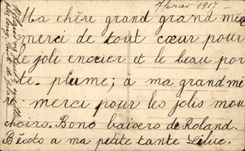 février 1917
Ma chère grand grand mie
merci de tout cœur pour
le joli encrier et le beau por
te. plume; à ma grand mi
merce pour les jolis mou
choirs. Bons baisers de Roland.
Bisots a ma petite tante